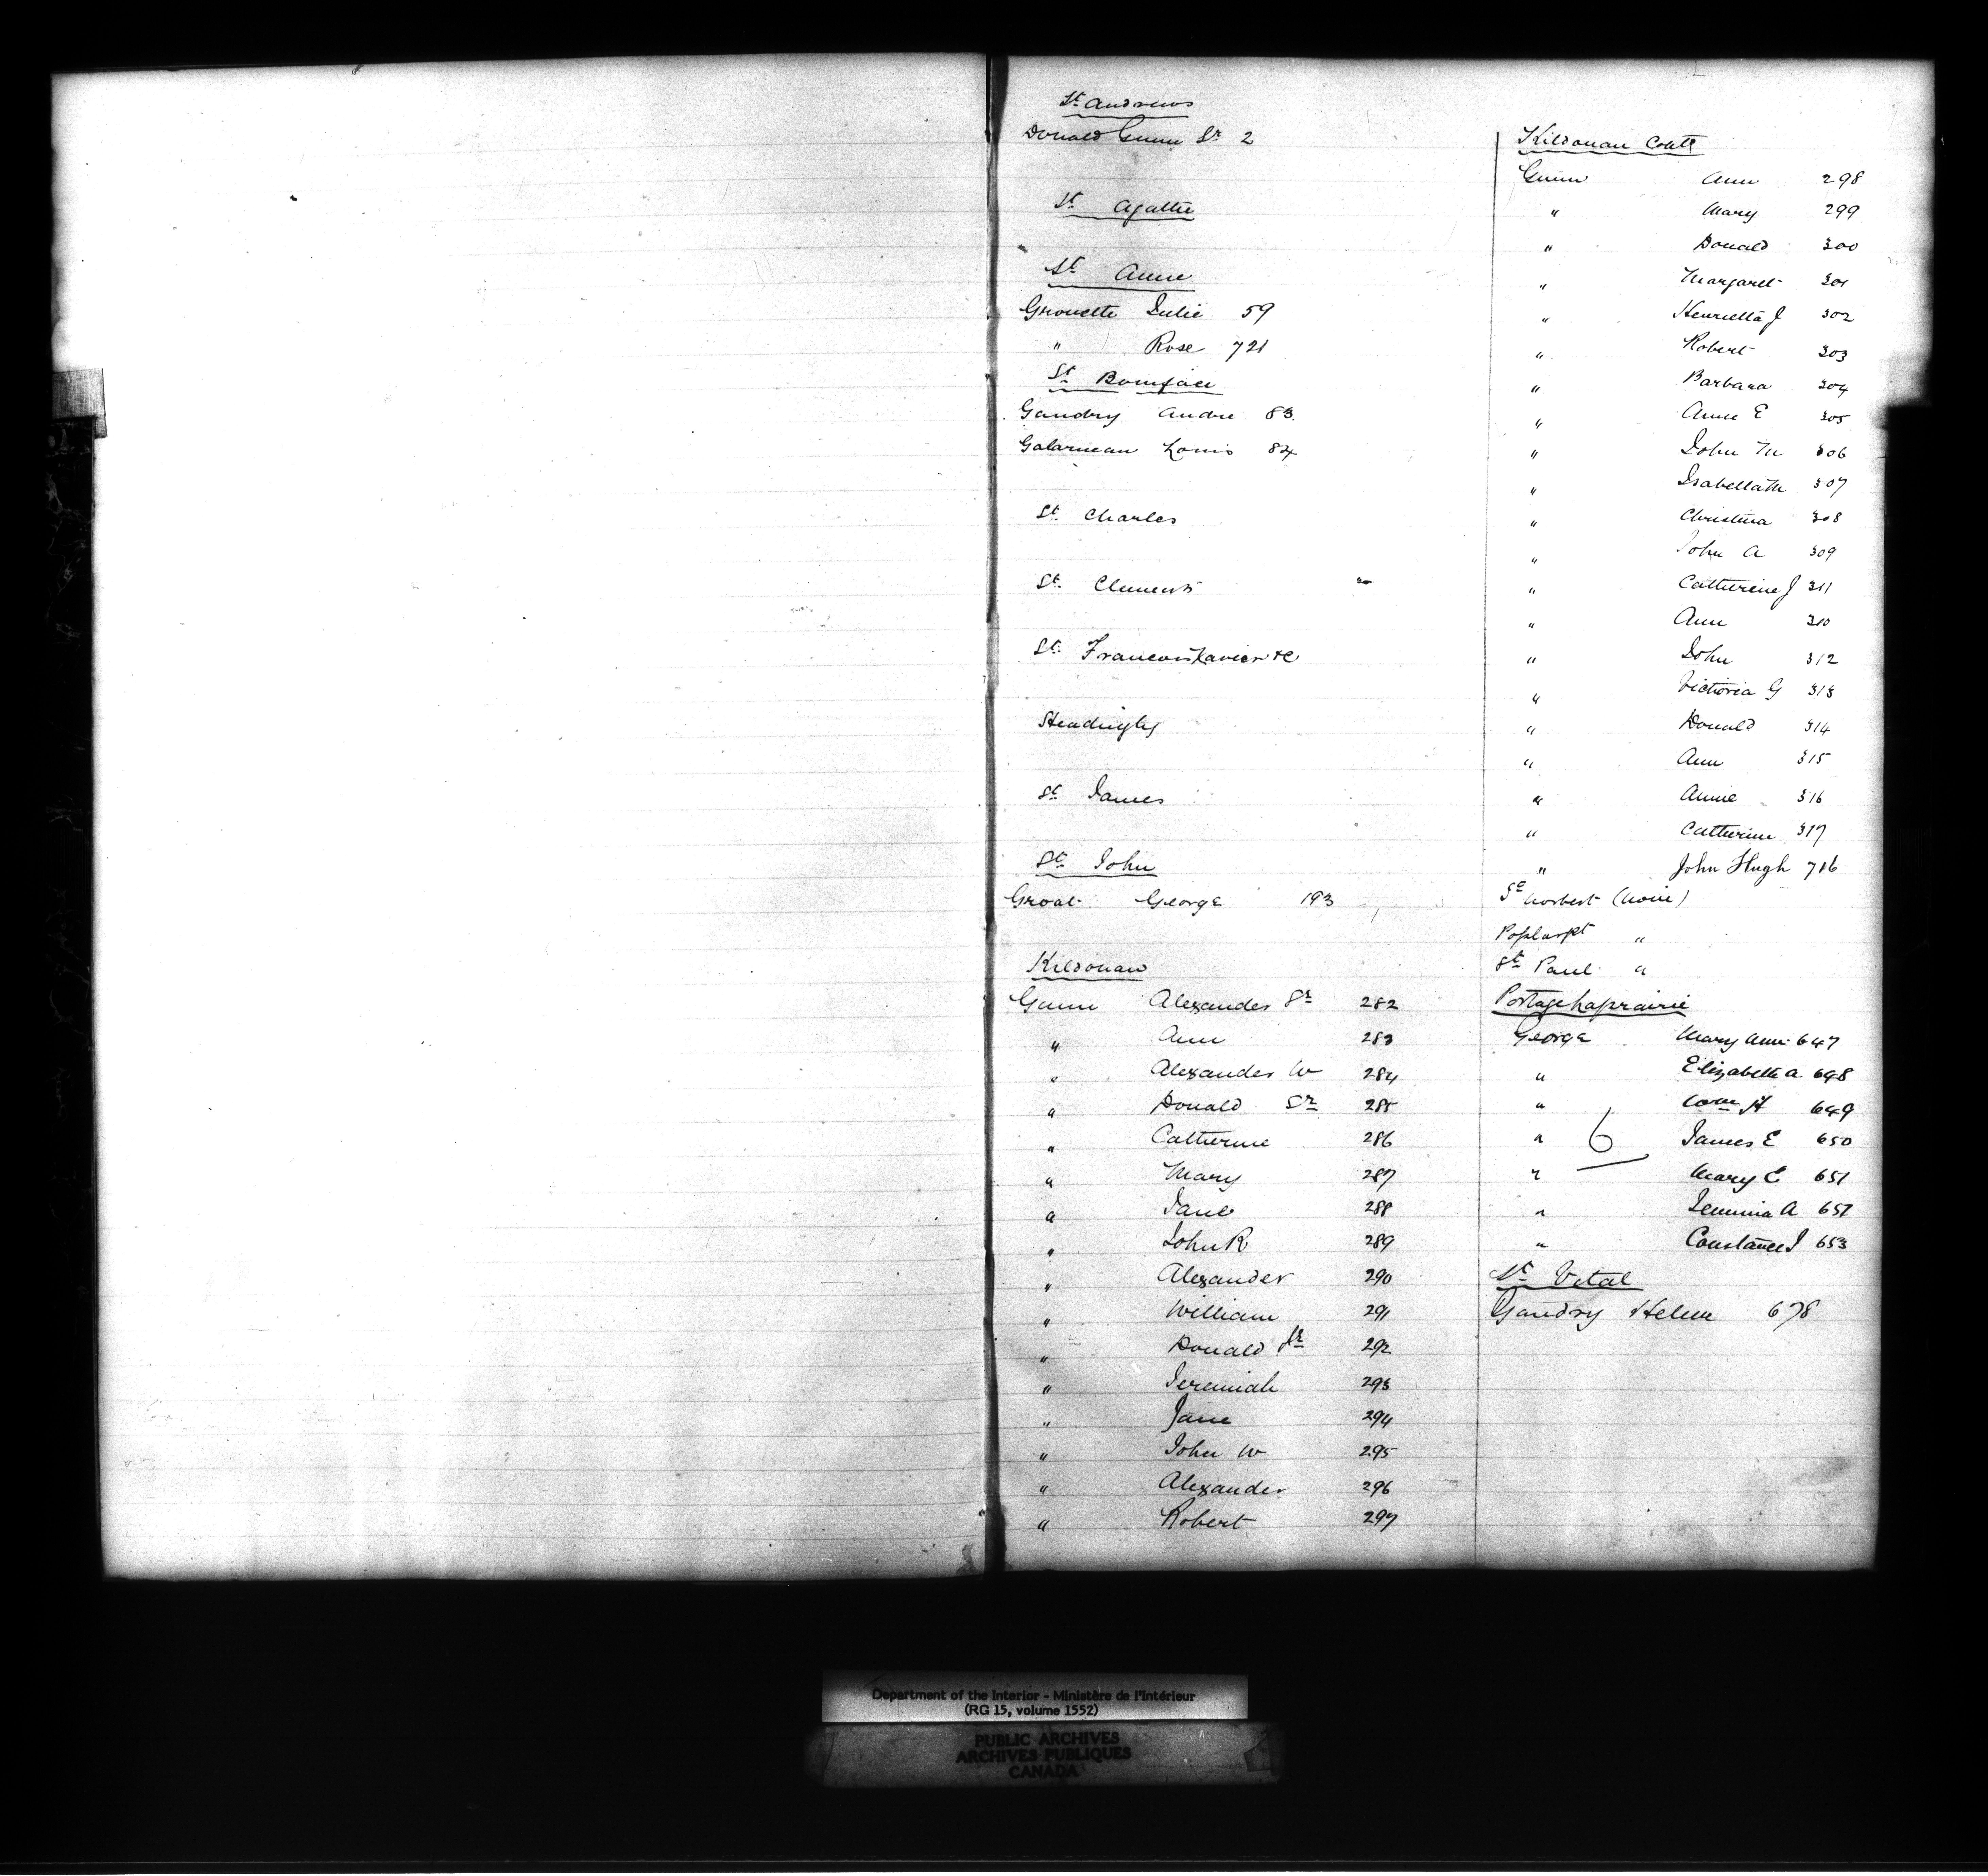 St Andrews
Donald Gunn Sr 2
St Agathe
St Anne
Grouette Julie 59
" Rose 721
St Boniface
Gaudry Andre 83
Galarneau Louis 84
St Charles
St Clements
St Francois Xavier &c
Headingly
St James
St John
Groat George 193
Kildonan
Gunn Alexander Sr 282
" Ann 283
" Alexander W 284
" Donald Sr 285
" Catherine 286
" Mary 287
" Jane 288
" John R 289
" Alexander 290
" William 291
" Donald Jr 292
" Jeremiah 293
" Jane 294
" John W 295
" Alexander 296
" Robert 297
Kildonan Contd
Gunn Ann 298
" Mary 299
" Donald 300
" Margaret 301
" Henrietta J 302
" Robert 303
" Barbara 304
" Anne E 305
" John M 306
" Isabella M 307
" Christina 308
" John A 309
" Catherine J 311
" Ann 310
" John 312
" Victoria G 313
" Donald 314
" Ann 315
" Annie 316
" Catherine 317
" John Hugh 716
St Norbert (None)
Poplar Pt "
St Paul "
Portage Laprairie
George Mary Ann 647
" Elizabeth A 648
" Wm H 649
" 6 James E 650
" Mary E 651
" Jemima A 652
" Constance J 653
St Vital
Gaudry Helen 678
Department of the Interior - Ministère de l'Intérieur
(RG 15, volume 1552)
PUBLIC ARCHIVES
ARCHIVES PUBLIQUES
CANADA